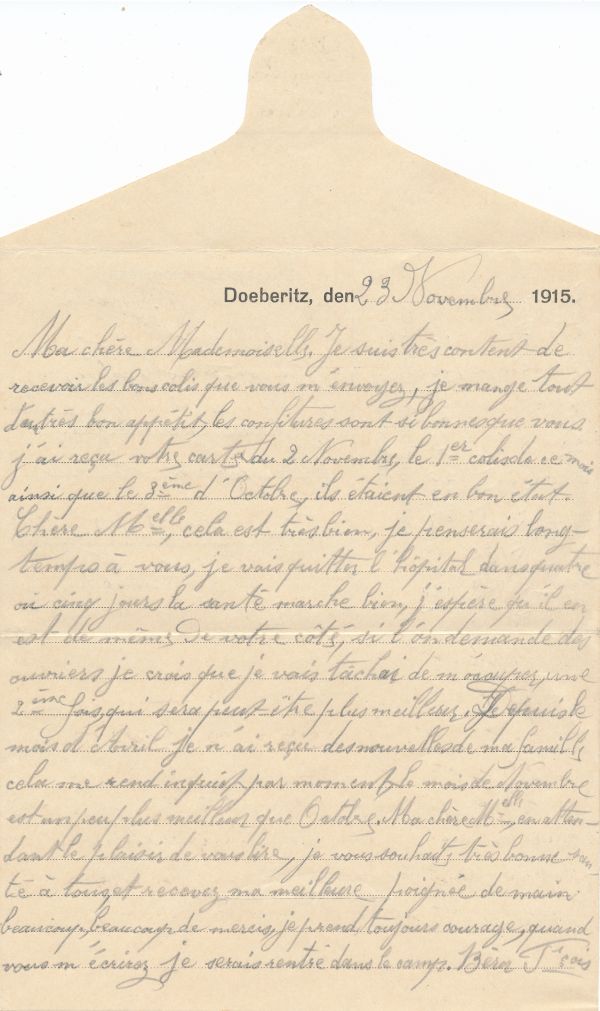 Doeberitz, den 23 Novembre 1915.
Ma chère Mademoiselle, Je suis très content de
recevoir les bons colis que vous m'envoyez, je mange tout
d'un très bon appétit, les confitures sont si bonnes que vous,
j'ai reçu votre carte du 2 Novembre, le 1er colis de ce mois
ainsi que le 3ème d'Octobre, ils étaient en bon état.
Chère Melle, cela est très bien, je penserais long-
temps à vous, je vais quitter l'hôpital dans quatre
où cinq jours la santé marche bien, j'espère qu'il en
est de même de votre côté, si l'on demande des
ouvriers je crois que je vais tâcher de m'occuper, une
2ème fois qui sera peut-être plus meilleure. Depuis le
mois d'Avril je n'ai reçu des nouvelles de ma famille,
cela me rend inquiet par moment, le mois de Novembre
est un peu plus meilleur que Octobre. Ma chère Melle, en atten-
dant le plaisir de vous lire, je vous souhaite très bonne san-
té à tous, et recevez ma meilleure poignée de main
beaucoup, beaucoup de mercis, je prend toujours courage, quand
vous m'écrirez je serais rentré dans le camp. Fçois